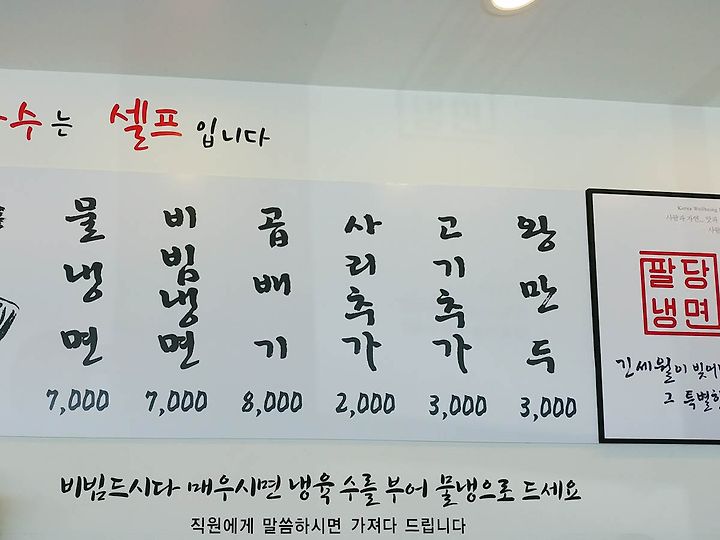 수는 셀프입니다
물냉면 7,000
비빔냉면 7,000
곱배기 8,000
사리추가 2,000
고기추가 3,000
왕만두 3,000
팔당
냉면
긴세월이 빚어
그 특별한
비빔드시다 매우시면 냉육수를 부어 물냉으로 드세요
직원에게 말씀하시면 가져다 드립니다